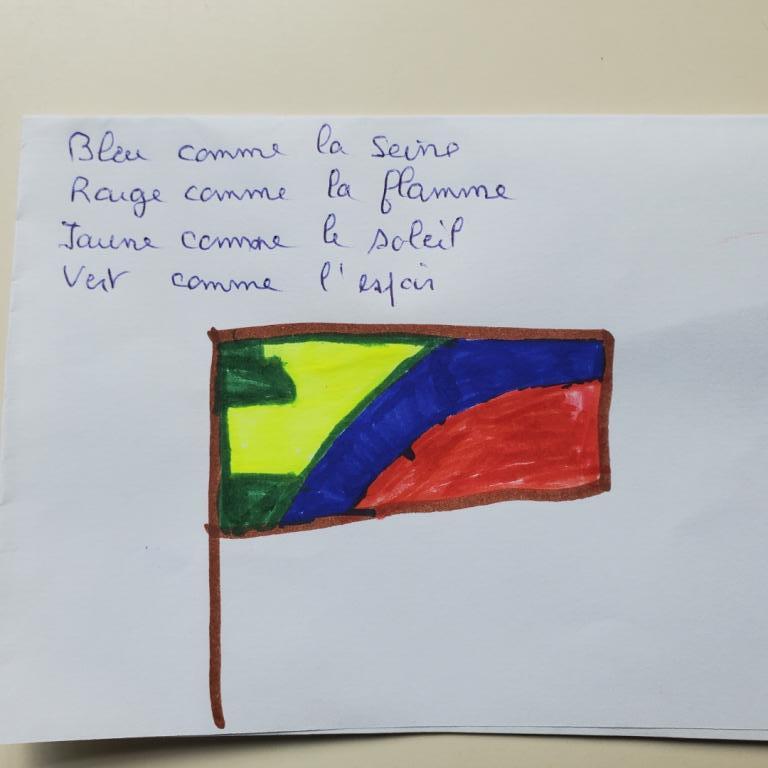 Bleu comme la Seine
Rouge comme la flamme
Jaune comme le soleil
Vert comme l'espoir